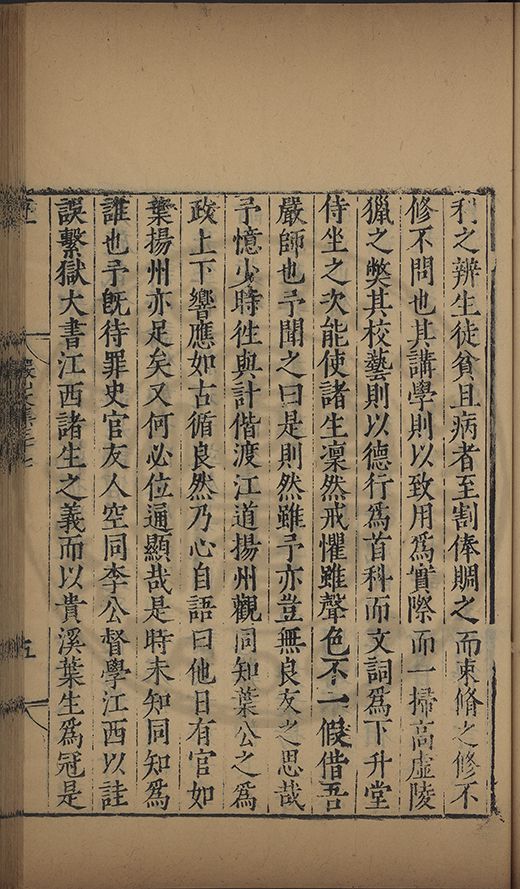 利之辨生徒貧且病者至割俸賙之而束脩之修不
修不問也其講學則以致用爲實際而一掃高虛陵
獵之獘其校藝則以德行爲首科而文詞爲下升堂
侍坐之次能使諸生凜然戒懼雖聲色不一假借吾
嚴師也予聞之曰是則然雖予亦豈無良友之思哉
予憶少時徃與計偕渡江道揚州觀同知葉公之爲
政上下響應如古循良然乃心自語曰他日有官如
葉揚州亦足矣又何必位逼顯哉是時未知同知爲
誰也予旣待罪史官友人空同李公督學江西以詿
誤繫獄大書江西諸生之義而以貴溪葉生爲冠是
五